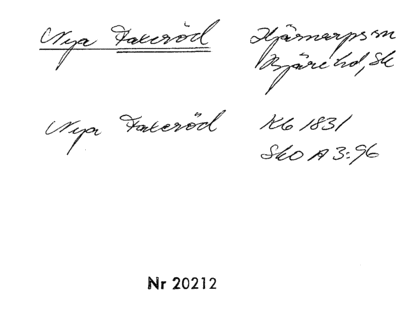 Nya Faxeröd Hjärnarps sn
Bjäre hd, Sk
Nya Faxeröd Kb 1831
SkO A 3:96
Nr 20212